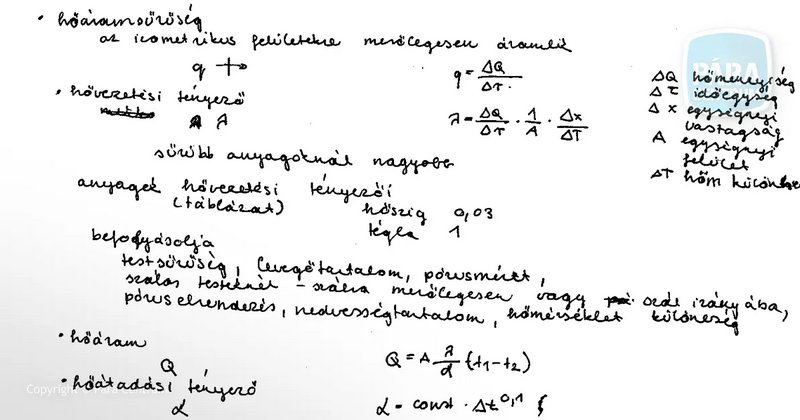 • hőáramsűrűség
az izometrikus felületekre merőlegesen áramlik
q
q = ΔQ / Δτ
• hővezetési tényező
λ
λ = ΔQ/Δτ · 1/A · Δx/ΔT
ΔQ hőmennyiség
Δτ időegység
Δx egységnyi
vastagság
A egységnyi
felület
ΔT hőm különbség
sűrűbb anyagoknál nagyobb
anyagok hővezetési tényezői
(táblázat)
hőszig 0,03
tégla 1
befolyásolja
testsűrűség, levegőtartalom, pórusméret,
szálas testeknél - szálra merőlegesen vagy szál irányába,
póruselrendezés, nedvességtartalom, hőmérséklet különbség
• hőáram
Q
Q = A · λ/d (t1 - t2)
• hőátadási tényező
α
α = const · Δt^0,1
PÁRA
Copyright